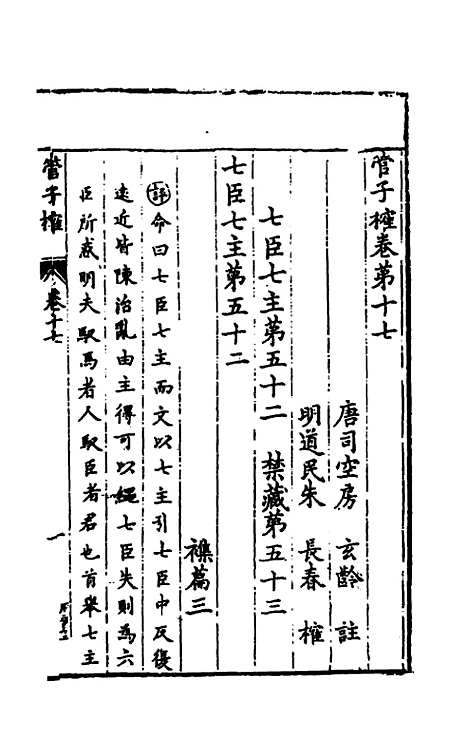 管子榷卷第十七
唐司空房　玄齡　註
明道民朱　長春　榷
七臣七主第五十二　禁藏第五十三
七臣七主第五十二
襍篇三
評命曰七臣七主而文以七主引七臣中反復
遠近皆陳治亂由主得可以繩七臣失則為六
臣所惑明夫馭馬者人馭臣者君也首舉七主
管子榷　卷十七　一